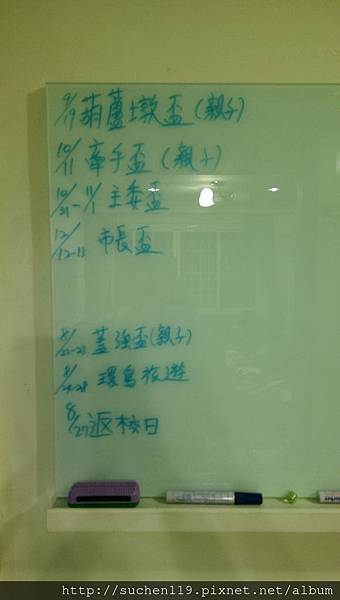 9/19 葫蘆墩盃(親子)
10/11 牽手盃(親子)
10/31-11/1 主委盃
12/12-13 市長盃
8/22-23 蓋強盃(親子)
8/ -28 環島旅遊
8/27 返校日
http://suchen119.pixnet.net/album